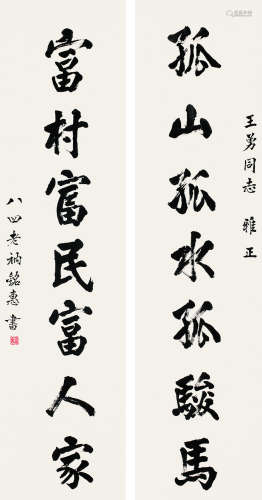 王勇同志 雅正
孤山孤水孤骏馬
富村富民富人家
八四老衲銘惠書